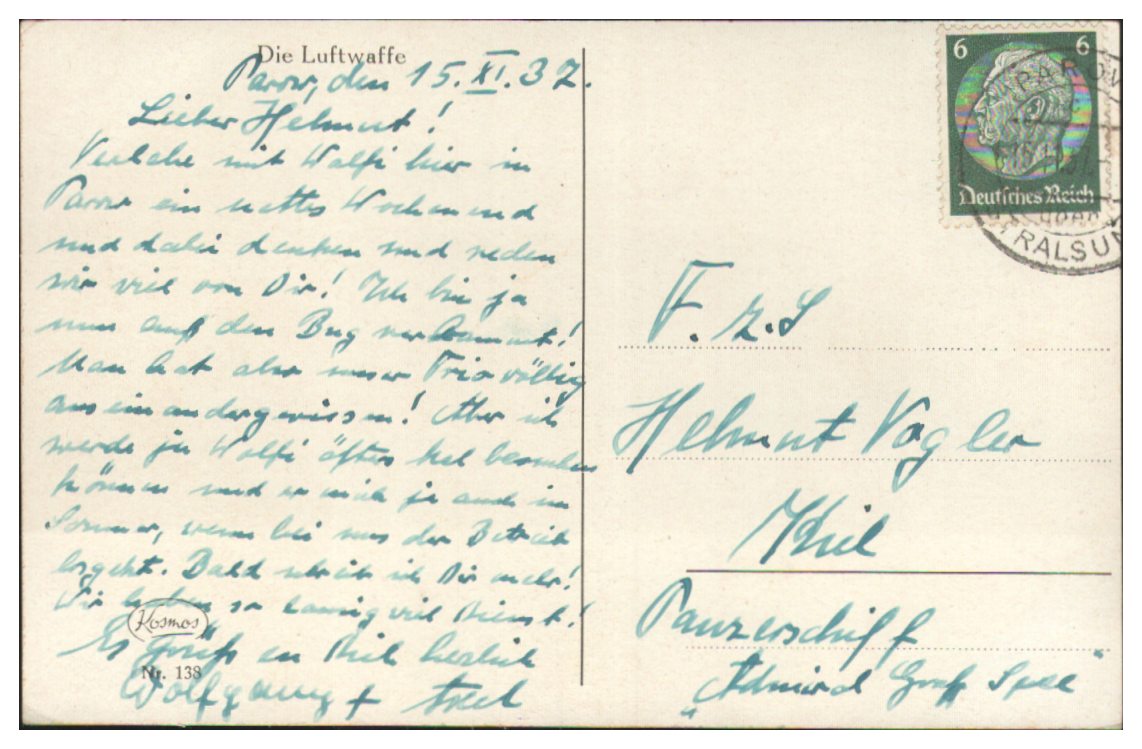 Die Luftwaffe
Parow, den 15.XI.37.
Lieber Helmut!
Verlebe mit Wolfi hier in
Parow ein nettes Wochenend
und dabei denken und reden
wir viel von Dir! Ich bin ja
nun auf den Bug verbannt!
Man hat also unser Trio völlig
auseinandergerissen! Aber ich
werde ja Wolfi öfters mal besuchen
können und er mich ja auch im
Sommer, wenn bei uns der Betrieb
losgeht. Bald schreib ich Dir mehr!
Wir haben so viel Dienst!
Es grüßt herzlich
Wolfgang +
Kosmos
Nr. 138
6 6
Deutsches Reich
PAROW
STRALSUND
F. z. S
Helmut Vogler
Kiel
Panzerschiff
„Admiral Graf Spee"